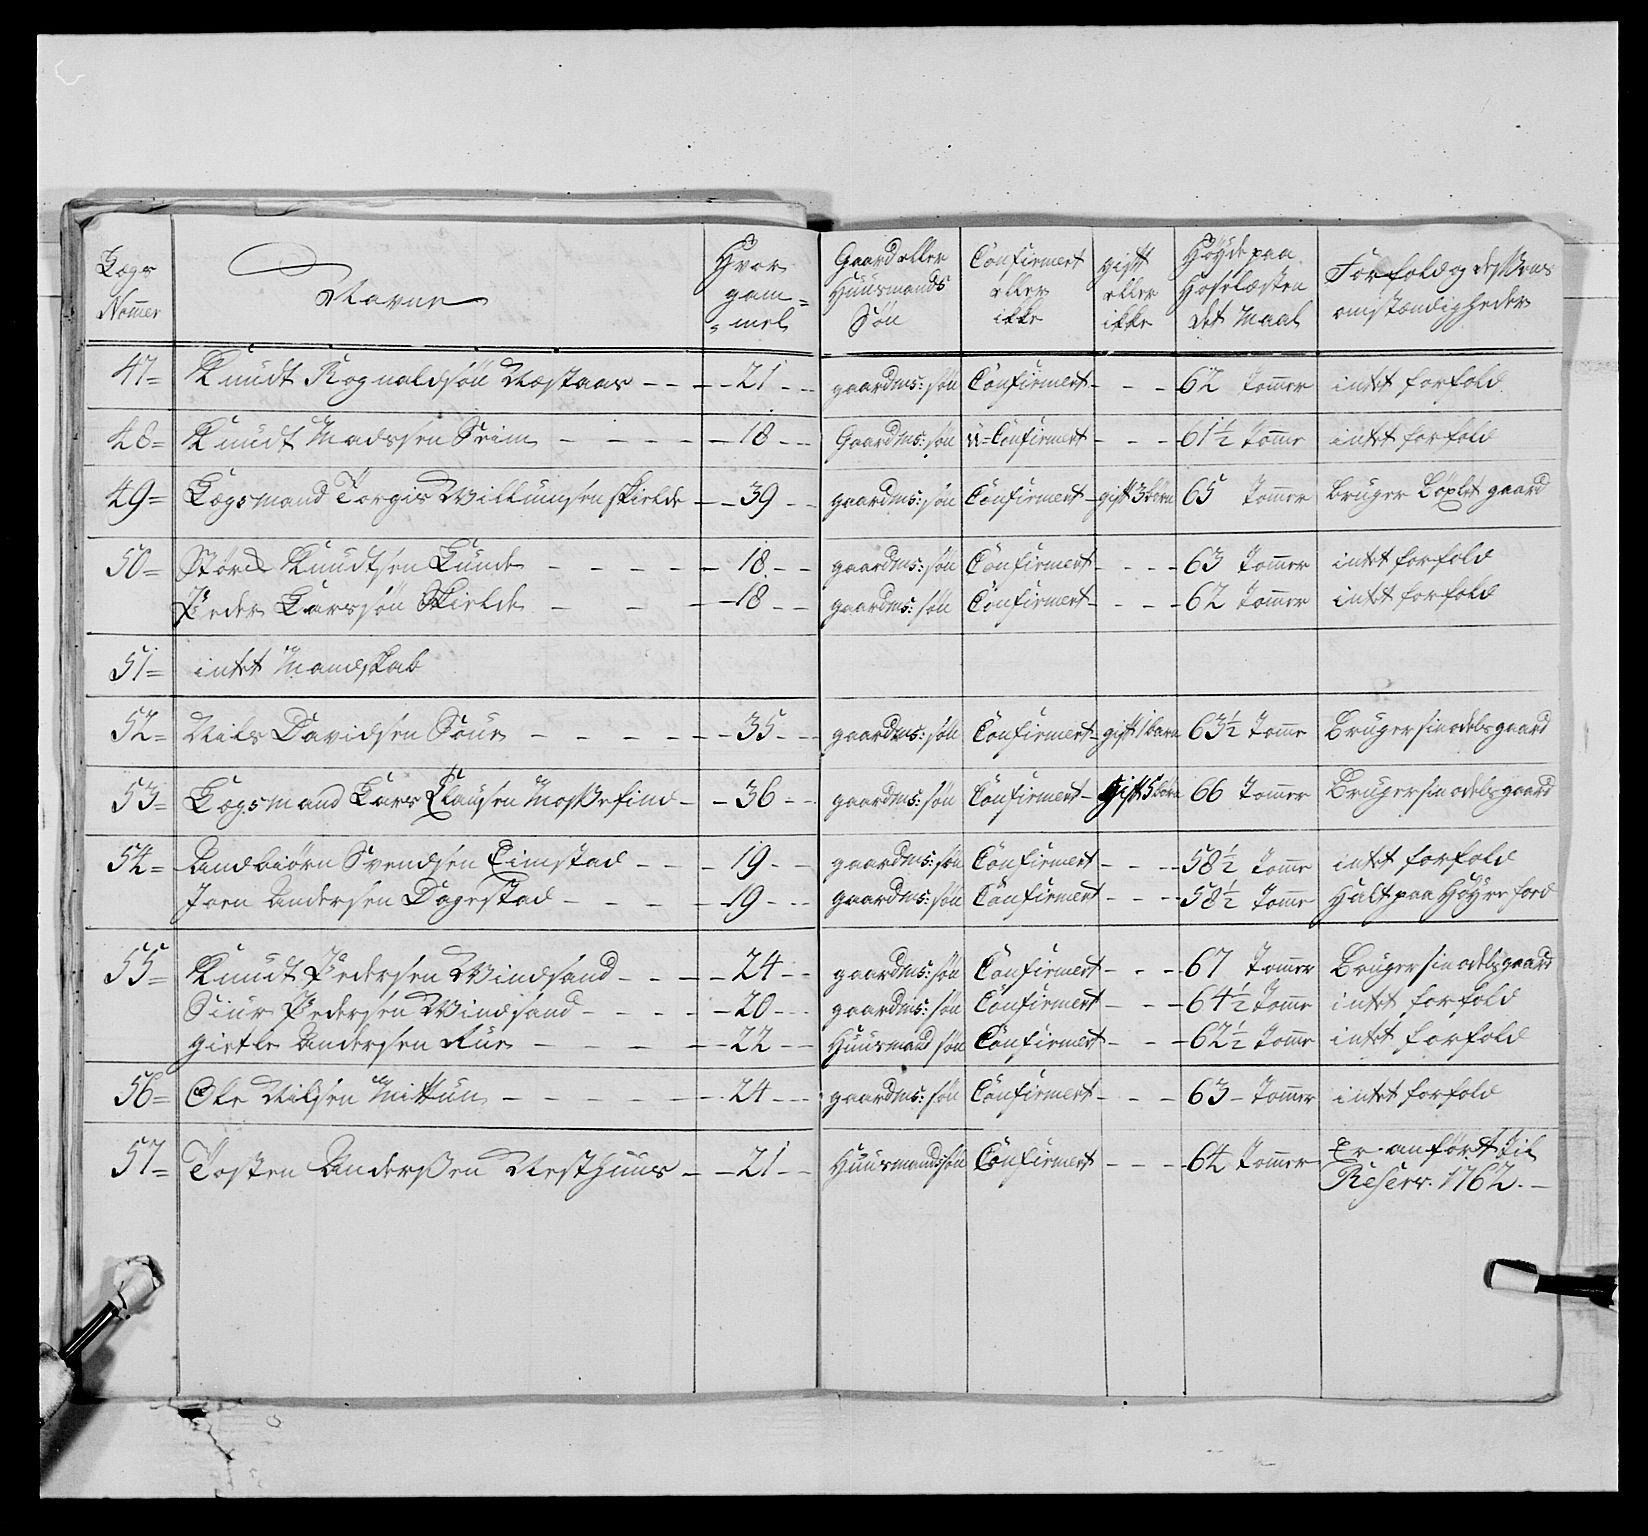 Lægs Nomer | Navne | Hvor gam= =mel | Gaard eller Huusmands Søn | Confirmert eller ikke | gift eller ikke | Høyde paa Hoselæsten det Maal | Forfold og desßens omstændigheder
47= Knudt Rognaldsøn Næstaas - - - 21 - - gaardms: søn Confirmert - - - 62 Tomer intet forfold
48= Knudt Madssen Seim - - - - - 18 - - Gaardms: søn u=Confirmert - - - 61½ Tomme intet forfold
49= Lægsmand Torgis Willumsen skielde - - 39 - - gaardms: søn Confirmert - gift 3 børn 65 Tomer bruger gaard
50= Knudtsen Lunde - - - - - 18 - - gaardms: søn Confirmert - - - 63 Tomer intet forfold
Peder Larssøn Skielde - - - - 18 - - gaardms: søn Confirmert - - - 62 Tomer intet forfold
51= intet Mandskab
52= Nils Davidsen Soue - - - - - 35 - - gaardms: søn Confirmert - gift 1 barn 63½ Tomme Bruger sin odels gaard
53= Lægsmand Lars Clausen Moßefind - - 36 - - gaardms: søn Confirmert - gift 5 børn 66 Tomer Bruger sin odels gaard
54= Andbiørn Svendsen Timstad - - - 19 - - gaardms: søn Confirmert - - - 58½ Tomme intet forfold
Joen Andersen Dagestad - - - - 19 - - gaardms: søn Confirmert - - - 58½ Tomme Halt paa Høyre foed
55= Knudt Pedersen Windsand - - - 24 - - gaardms: søn Confirmert - - - 67 Tomer Bruger sin odels gaard
Siur Pedersen Windsand - - - - 20 - - gaardms: søn Confirmert - - - 64½ Tomme intet forfold
Gietle Andersen Rue - - - - - 22 - - Huusmand søn Confirmert - - - 62½ Tomme intet forfold
56= Ole Nilsen Mittun - - - - - 24 - - gaardms: søn Confirmert - - - 63 - Tomer intet forfold
57= Tosten Anderßen Nesthuus - - 21 - - Huusmandssøn Confirmert - - - 64 Tomer Er anført til
Reserv. 1762. -